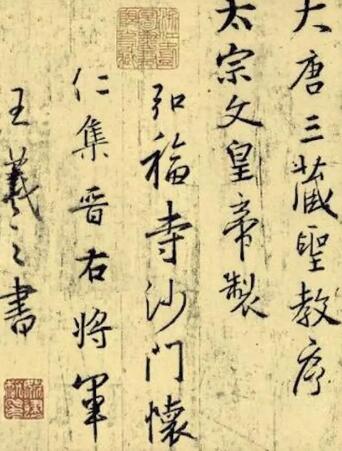 大唐三藏聖教序
太宗文皇帝製
弘福寺沙門懷
仁集晋右将軍
王羲之書